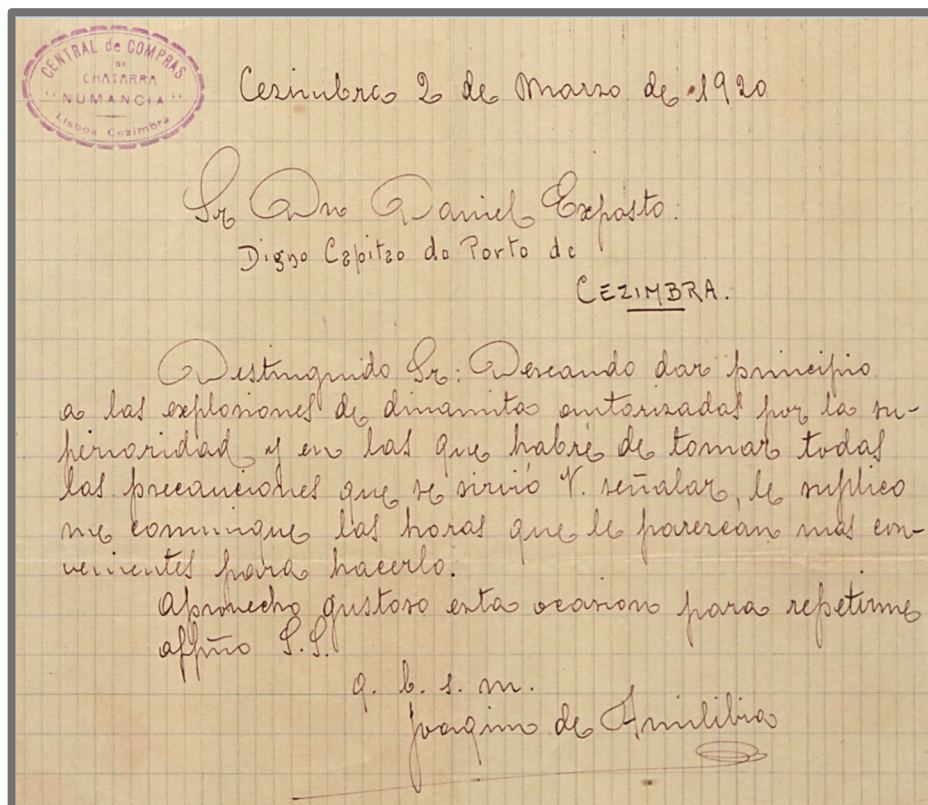 CENTRAL de COMPRAS
DE
CHATARRA
"NUMANCIA"
Lisboa Cezimbra
Cezimbra 2 de Marzo de 1920
Sr Dn Daniel Exposto:
Digno Capitao do Porto de
CEZIMBRA.
Distinguido Sr: Deseando dar principio
a las explosiones de dinamita autorizadas por la su-
perioridad y en las que habré de tomar todas
las precauciones que se sirvió V. señalar, le suplico
me comunique las horas que le parezcan mas con-
venientes para hacerlo.
Aprovecho gustoso esta ocasion para repetirme
affmo S.S.
q. b. s. m.
Joaquin de Amilibia